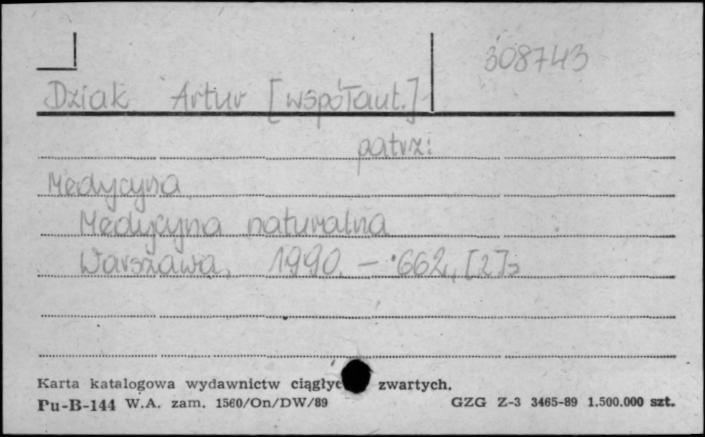 308743
Dziak Artur [współaut.]
patrz:
Medycyna
Medycyna naturalna
Warszawa, 1990. - 662, [2] s
Karta katalogowa wydawnictw ciągłyc zwartych.
Pu-B-144 W.A. zam. 1560/On/DW/89 GZG Z-3 3465-89 1.500.000 szt.